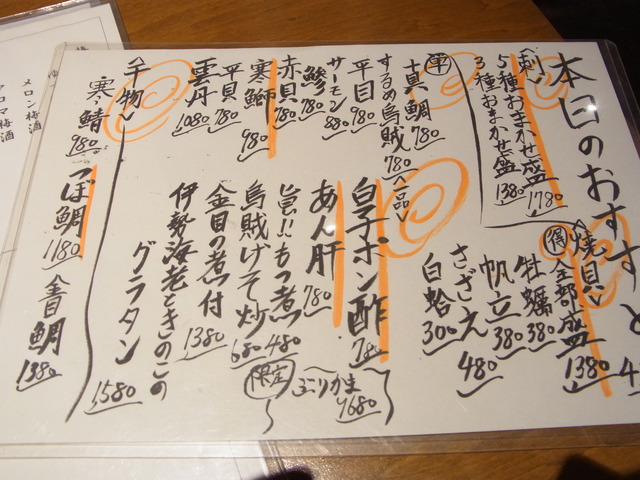 本日のおすすめ
<刺>
5種おまかせ盛
1780
3種おまかせ盛
1380
単
真鯛 780
するめ烏賊 780
平目 780
サーモン 880
鯵 780
赤貝 780
寒鰤 980
平貝 780
雲丹 1080
<焼貝>
得 全部盛 1380
牡蠣 380
帆立 380
さざえ 480
白蛤 300
<一品>
白子ポン酢 780
あん肝 780
旨!!もつ煮 480
烏賊げそ炒 680
金目の煮付 1380
伊勢海老ときのこの
グラタン 1580
限定
ぶりかま 1680
<干物>
寒鯖 980
つぼ鯛 1180
金目鯛 1380
メロン梅酒
アロマ梅酒